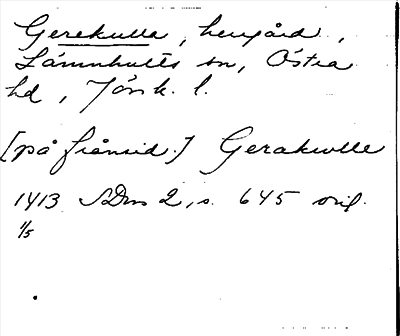 Gerekulla, herrgård,
Lannhults sn, Östra
hd, Jönk. l.
[på frånsid.] Gerakulle
1413 SDns 2, s. 645 orig.
1/5